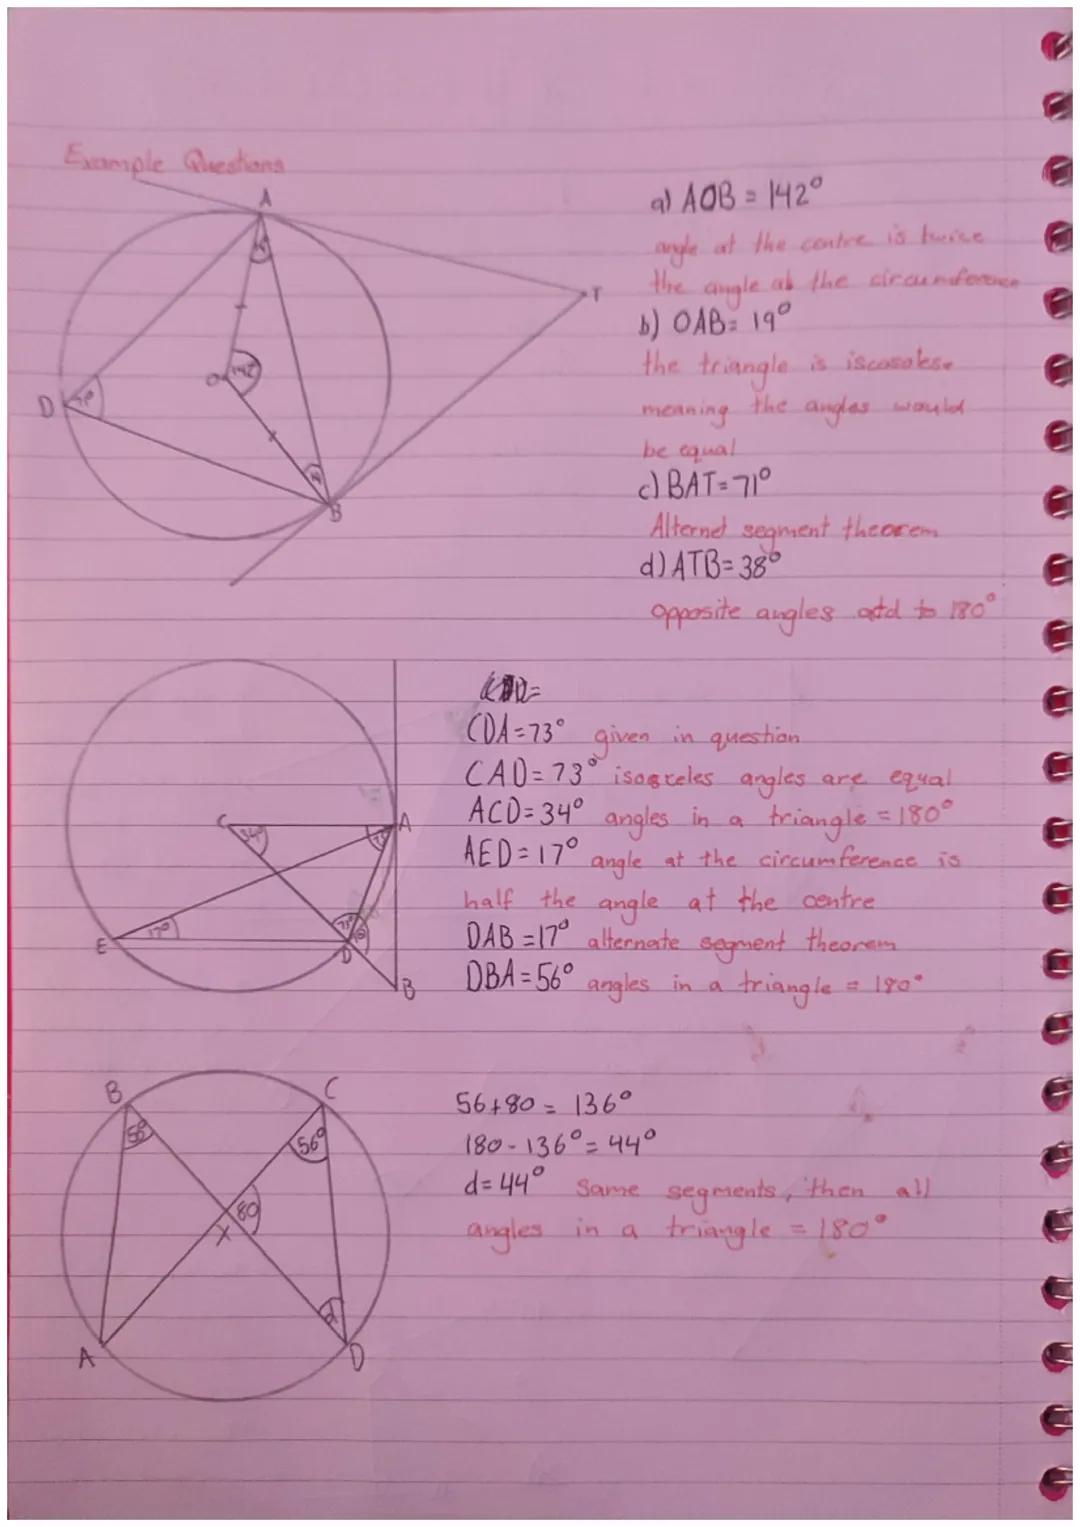 Example Questions
A
T
O
142
D
71°
19
19
B
a) AOB = 142°
angle at the centre is twice
the angle at the circumference
b) OAB = 19°
the triangle is iscosolese
meaning the angles would
be equal
c) BAT = 71°
Alternet segment theorem
d) ATB = 38°
opposite angles add to 180°
CDA = 73° given in question
CAD = 73° isosceles angles are equal
ACD = 34° angles in a triangle = 180°
AED = 17° angle at the circumference is
half the angle at the centre
DAB = 17° alternate segment theorem
DBA = 56° angles in a triangle = 180°
C
34°
A
E
17°
73°
D
B
B
C
56°
56°
80
X
d
A
D
56+80 = 136°
180 - 136° = 44°
d = 44° Same segments, then all
angles in a triangle = 180°